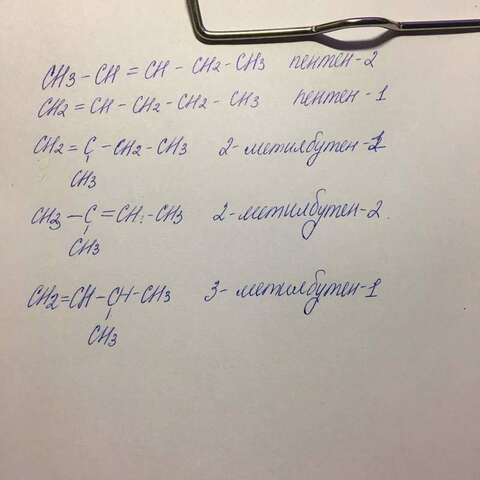 CH3 - CH = CH - CH2 - CH3 пентен-2
CH2 = CH - CH2 - CH2 - CH3 пентен-1
CH2 = C - CH2 - CH3 2-метилбутен-1
CH3
CH3 - C = CH - CH3 2-метилбутен-2.
CH3
CH2 = CH - CH - CH3 3-метилбутен-1
CH3